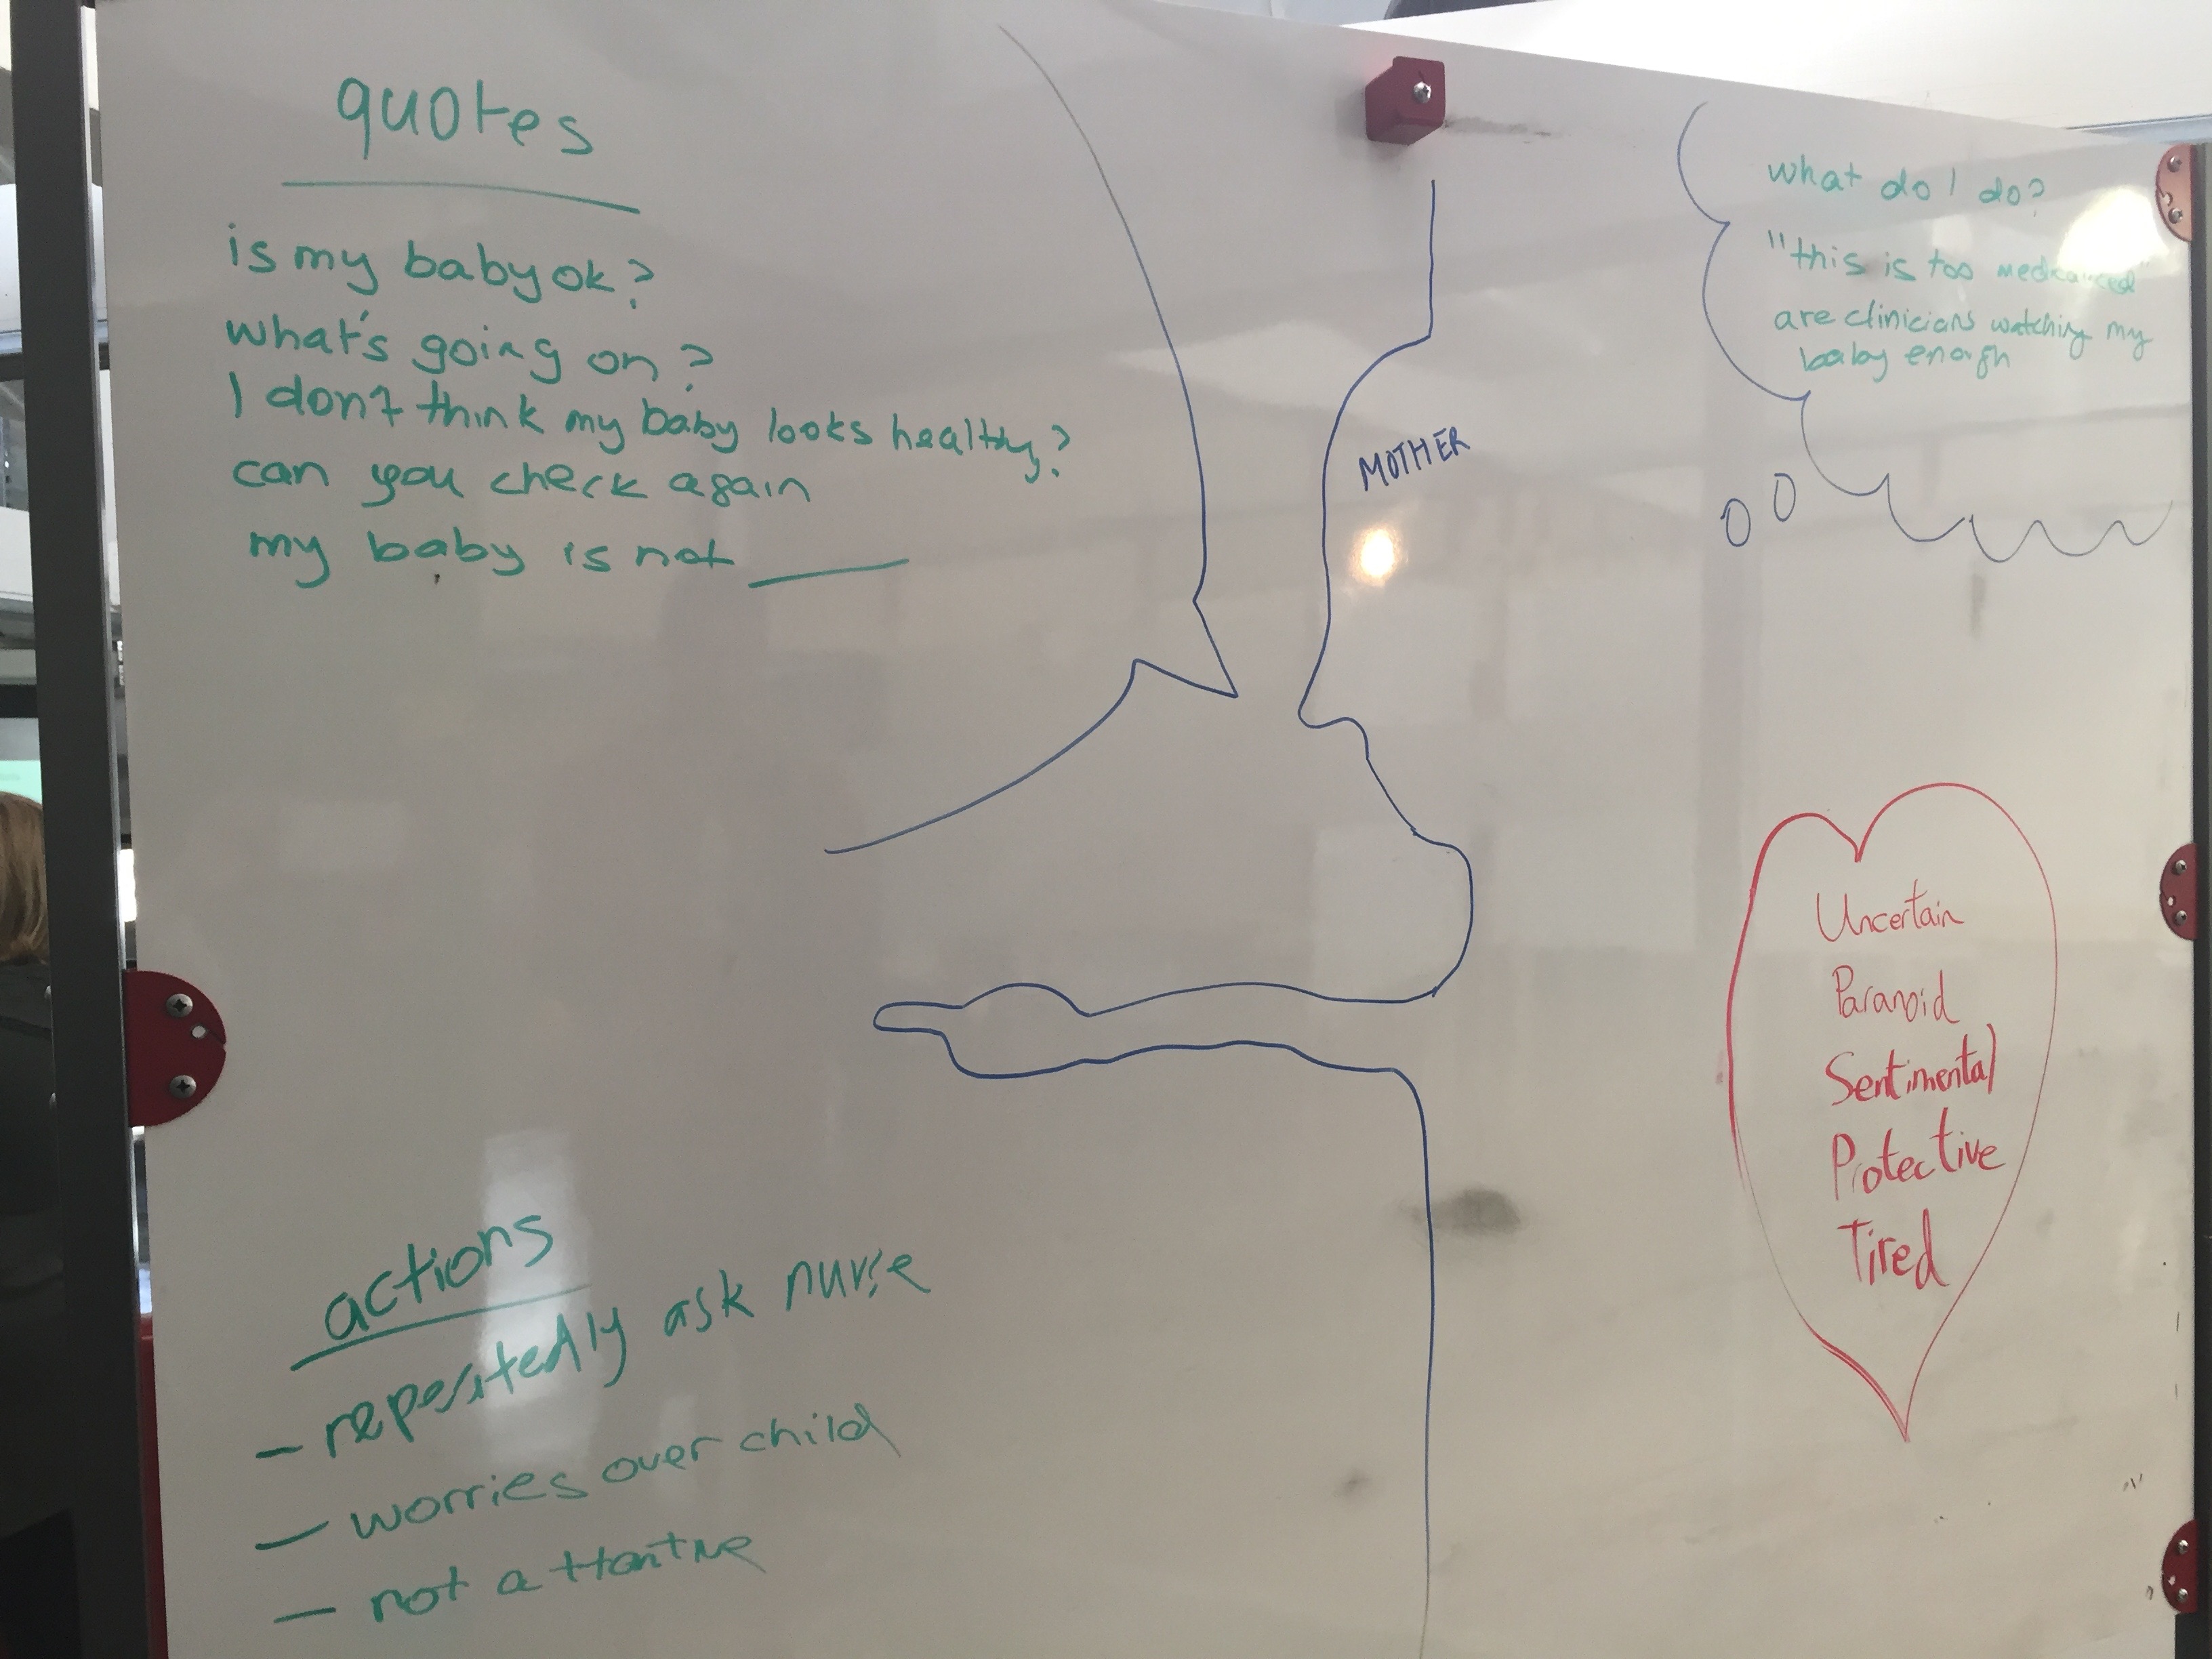 quotes
is my baby ok?
what's going on?
I don't think my baby looks healthy?
can you check again
my baby is not ____
MOTHER
what do I do?
"this is too medicalised"
are clinicians watching my
baby enough
Uncertain
Paranoid
Sentimental
Protective
Tired
actions
- repeatedly ask nurse
- worries over child
- not attentive